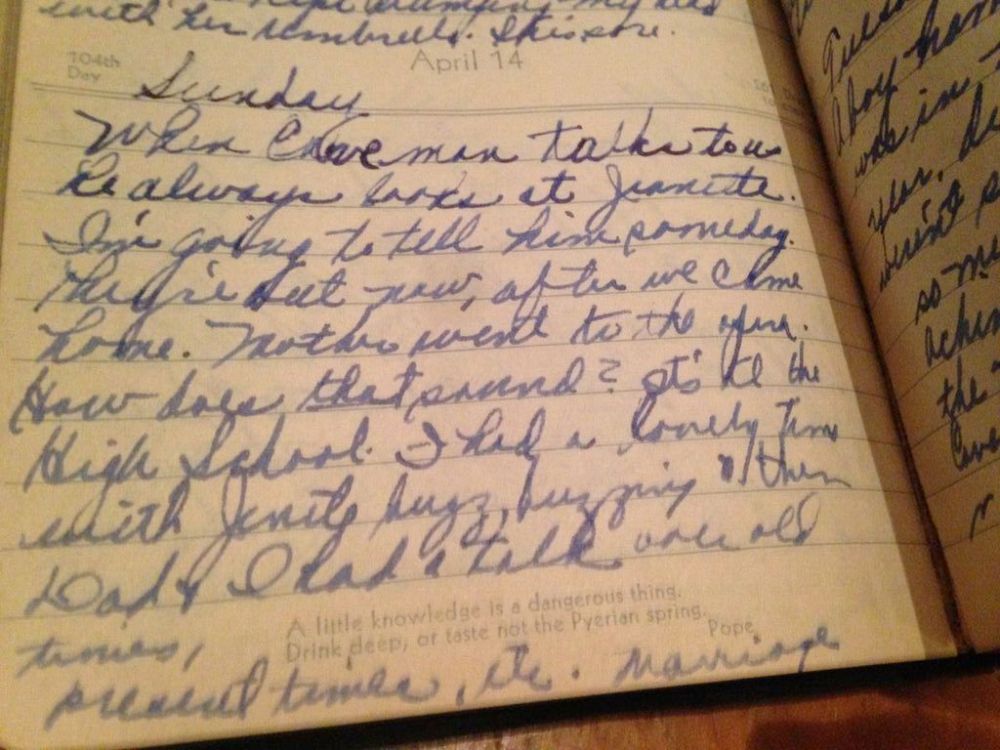 with her umbrella. It is sore.
104th
Day
April 14
Sunday
When Caveman talks to us
he always looks at Jeanette.
I'm going to tell him someday.
They're out now, after we came
home. Mother went to the opera.
How does that sound? It's at the
High School. I had a lovely time
with buzz, buzzing then
Dad & I had a talk over old
times,
A little knowledge is a dangerous thing.
Drink deep, or taste not the Pyerian spring.
Pope
present times, etc. Marriage
Tuesday
was in
year,
the